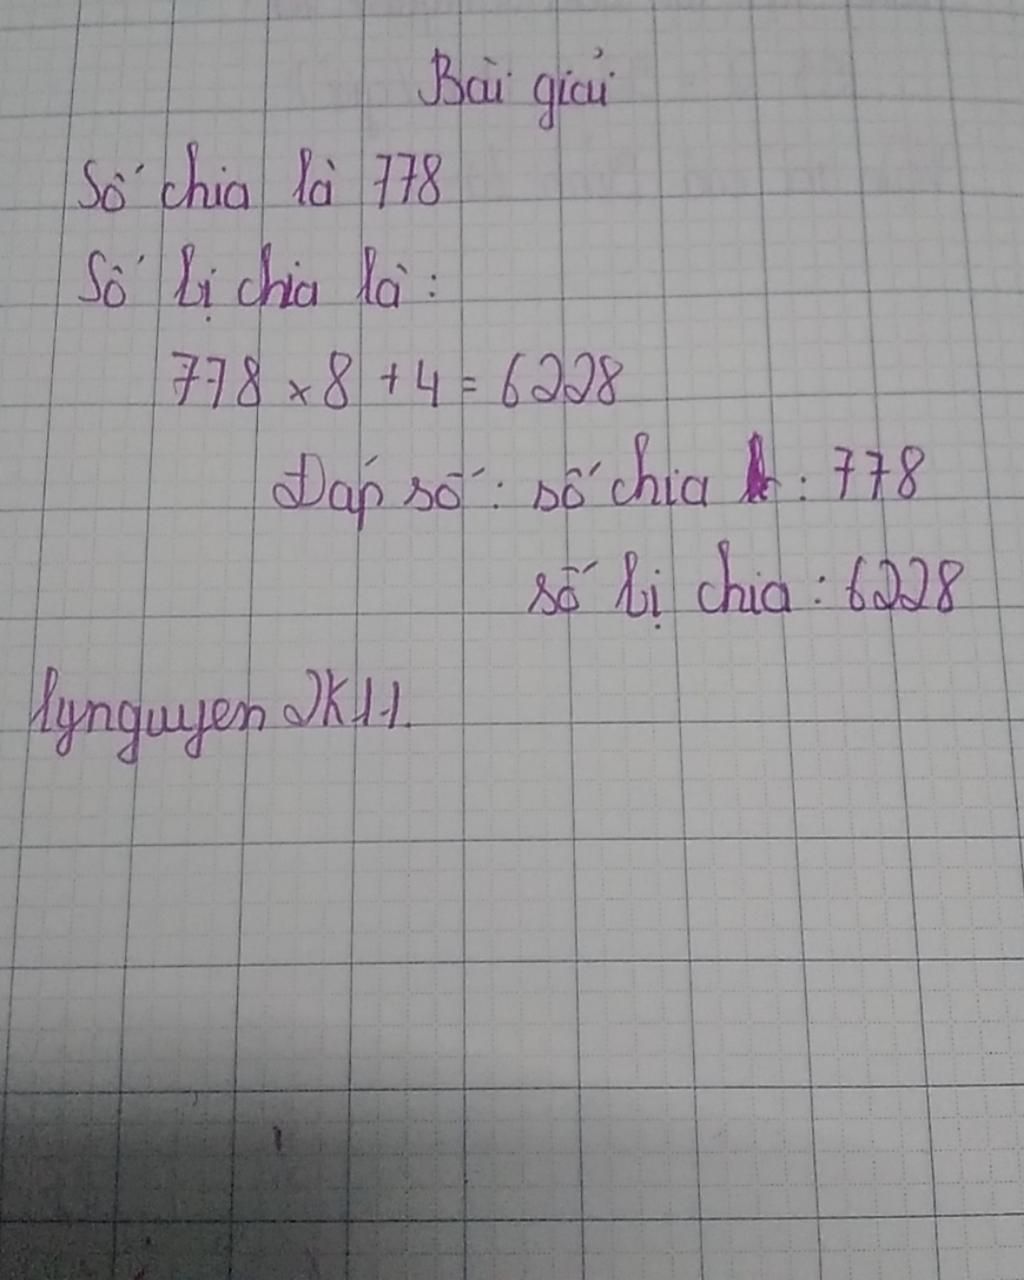 Bài giải
Số chia là 778
Số bị chia là:
778 x 8 + 4 = 6228
Đáp số: số chia : 778
số bị chia : 6228
lynguyen 2K11.